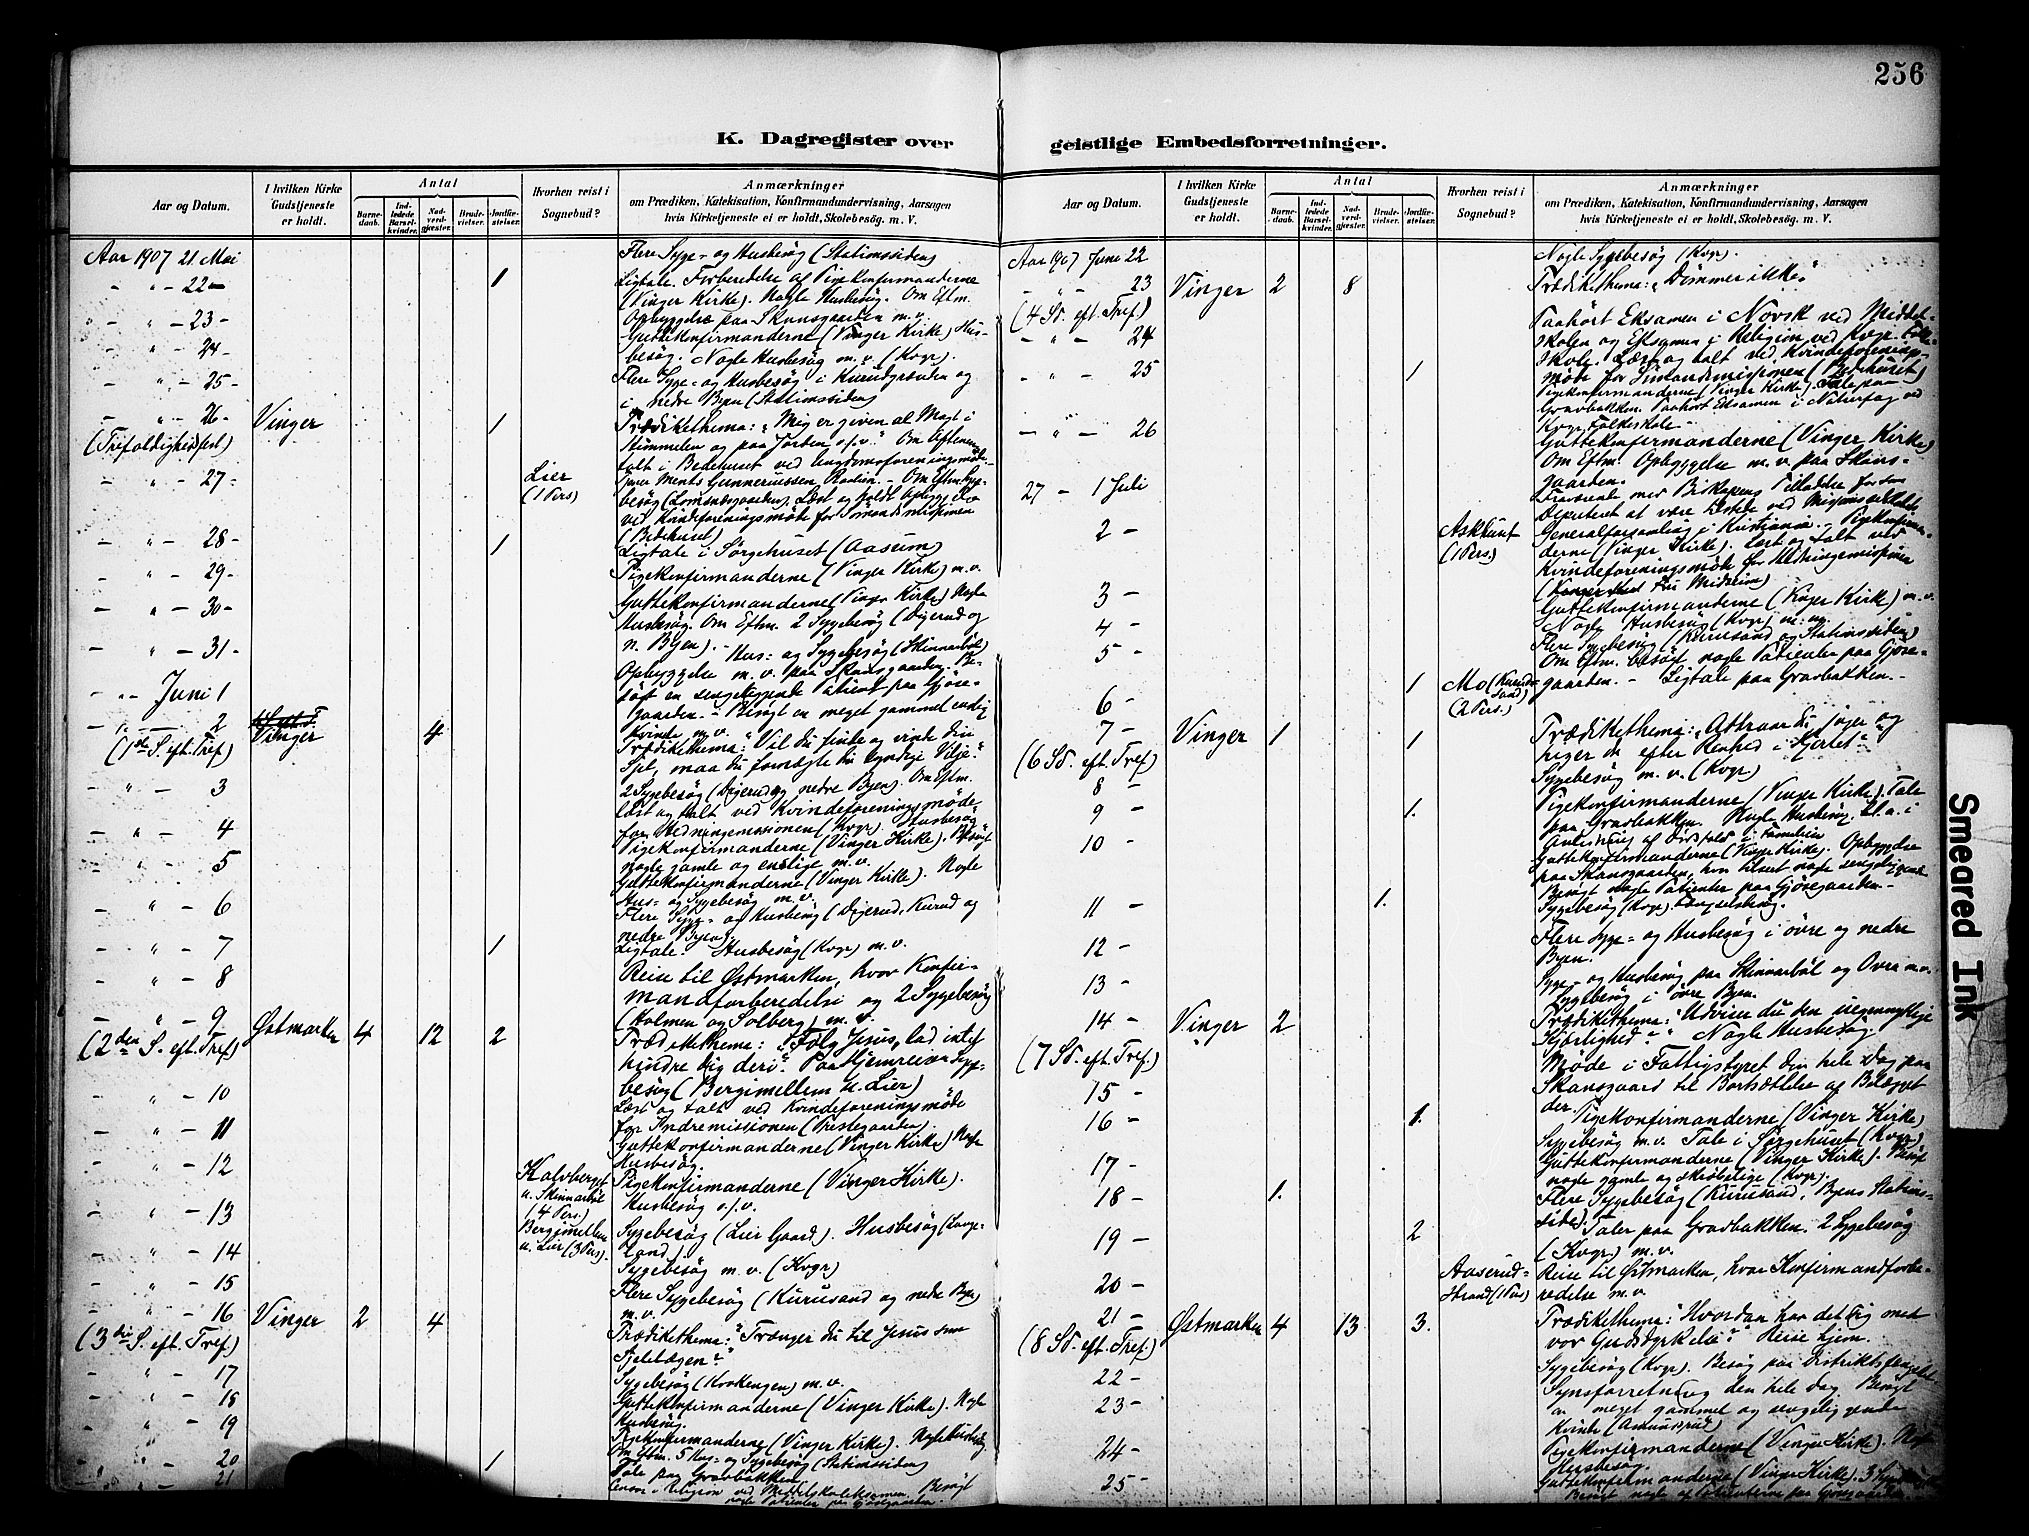 256
K. Dagregister over
geistlige Embedsforretninger.
Aar og Datum.
I hvilken Kirke
Gudstjeneste
er holdt.
Antal
Barne-
daab.
Ind-
ledede
Barsel-
kvinder.
Nad-
verd-
gjæster.
Brude-
vielser.
Jordfæ-
stelser.
Hvorhen reist i
Sognebud?
Anmærkninger
om Prædiken, Katekisation, Konfirmandundervisning, Aarsagen
hvis Kirketjeneste ei er holdt, Skolebesøg. m. V.
Aar 1907 21 Mai
Flere Syge- og Husbesøg (Stationssiden)
- " - 22 -
1
Ligtale. Forberedelse af Pigekonfirmanderne
(Vinger Kirke). Nogle Husbesøg. Om Eftm.
- " - 23 -
Opbyggelse paa Skansgaarden m.v.
Guttekonfirmanderne (Vinger Kirke) Hus-
- " - 24
besøg. Nogle Husbesøg m.v. (Kvgr).
- " - 25 -
Flere Syge- og Husbesøg i Kurudgrænden og
i nedre Byen (Stationssiden)
- " - 26 -
Vinger
1
Prædikethema: "Mig er given al Magt i
(Trefoldighedsfest)
Himmelen og paa Jorden o.s.v." Om Eftermm
talt i Bedehuset ved Ungdomsforeningsmøde
- " - 27 -
Lier
(1 Pers)
besøg (Lomsnæsgaarden). Læst og holdt Opbygg. Ele
ved Kvindeforeningsmøde for Sømandsmissionen
(Bedehuset)
- " - 28 -
1
Ligtale i Sørgehuset (Aasum)
- " - 29 -
Pigekonfirmanderne (Vinger Kirke) m.v.
- " - 30 -
Guttekonfirmanderne (Vinger Kirke) Nogle
Husbesøg. Om Eftm. 2 Sygebesøg (Digerud og
n. Byen). -
- " - 31 -
Hus- og Sygebesøg (Skinnarbøl)
Opbyggelse m.v. paa Skansgaarden. Be-
- " Juni 1
søgt en sengeliggende Patient paa Gjøse-
gaarden. - Besøgt en meget gammel enslig
- " - 2
Vinger
4
Kvinde m.v. "Vil du finde og vinde din
(1ste S. eft. Tref)
Prædikethema:
Sjel, maa du fornægte din syndige Vilje."
- " - 3
2 Sygebesøg (Digerud og nedre Byen). Om Eftm.
læst og talt ved Kvindeforeningsmøde
- " - 4
for Hedningemissionen (Kvgr). Husbesøg
Pigekonfirmanderne (Vinger Kirke). Besøgt
- " - 5
nogle gamle og enslige m.v.
Guttekonfirmanderne (Vinger Kirke). Nogle
- " - 6
Hus- og Sygebesøg m.v.
Flere Syge- og Husbesøg (Digerud, Kurud og
nedre Byen).
- " - 7
1
Ligtale. Husbesøg (Kvgr) m.v.
- " - 8
Reise til Østmarken, hvor Konfir-
mandforberedelse og 2 Sygebesøg
- " - 9
Østmarken
4
12
2
(Holmen og Solberg) m.v.
(2den S. eft. Tref)
Prædikethema: "Følg Jesus, lad intet
hindre dig deri". Paa Hjemreisen Syge-
- " - 10
besøg (Bergimellem u. Lier)
Læst og talt ved Kvindeforeningsmøde
- " - 11
for Indremissionen (Prestegaarden).
Guttekonfirmanderne (Vinger Kirke) Nogle
- " - 12
Husbesøg.
Kalvberget
u. Skinnarbøl
(4 Pers.)
Pigekonfirmanderne (Vinger Kirke).
- " - 13
Husbesøg o.s.v.
Bergimellem
u. Lier (3 Pers).
Sygebesøg (Lier Gaard). Husbesøg (Lange-
- " - 14
land)
Sygebesøg m.v. (Kvgr)
- " - 15
Flere Sygebesøg (Kurusand og nedre Byen)
- " - 16
Vinger
2
4
m.v.
(3die S. eft. Tref)
Prædikethema: "Trænger du til Jesus som
Sjelelægen?"
- " - 17
Sygebesøg (Krokengen) m.v.
- " - 18
Guttekonfirmanderne (Vinger Kirke). Nogle
Husbesøg.
- " - 19
Pigekonfirmanderne (Vinger Kirke). Nogle Husbesøg
- " - 20
1
Om Eftm. 5 Hus- og Sygebesøg (Stationssiden)
Tale paa Gravbakken
- " - 21
Censor i Religion ved Middelskoleeksamen. Besøgt
nogle Patienter paa Gjøsegaarden.
Aar og Datum.
I hvilken Kirke
Gudstjeneste
er holdt.
Antal
Barne-
daab.
Ind-
ledede
Barsel-
kvinder.
Nad-
verd-
gjæster.
Brude-
vielser.
Jordfæ-
stelser.
Hvorhen reist i
Sognebud?
Anmærkninger
om Prædiken, Katekisation, Konfirmandundervisning, Aarsagen
hvis Kirketjeneste ei er holdt, Skolebesøg. m. V.
Aar 1907 Juni 22
Nogle Sygebesøg (Kvgr).
- " - 23
Vinger
2
8
Prædikethema: "Dømmer ikke"
(4 S. eft. Tref)
Paahørt Eksamen i Norsk ved Middel-
- " - 24
skolen og Eksamen i Religion ved Kvgr. Folke-
skole. Læst og talt ved Kvindeforenings-
- " - 25
1
møde for Sømandsmissionen (Bedehuset)
Pigekonfirmanderne (Vinger Kirke) Tale paa
Gravbakken. Paahørt Eksamen i Naturfag ved
- " - 26
Kvgr. Folkeskole -
Guttekonfirmanderne (Vinger Kirke)
Om Eftm. Opbyggelse m.v. paa Skans-
gaarden.
27 - 1 Juli
Fraværende med Biskopens Tilladelse for som
Deputeret at være tilstede ved Misjonsselskabets
2 -
Askhuset
(1 Pers.)
Generalforsamling i Kristiania. - Pigekonfirman-
derne (Vinger Kirke). Læst og talt ved
Kvindeforeningsmøde for Hedningemissionen
3 -
Guttekonfirmanderne (Vinger Kirke) m.v.
4 -
Nogle Husbesøg (Kvgr) m.m.
Flere Sygebesøg (Kurusand og Stationssiden)
5 -
Om Eftm. besøgt nogle Patienter paa Gjøse-
6 -
1
Mo (Kuru-
sand)
(2 Pers.)
gaarden. - Ligtale paa Gravbakken. -
7 -
Vinger
1
1
Prædikethema: "Attraar du, jager og
(6 S. eft. Tref)
higer du efter Renhed i Hjertet"
8 -
Sygebesøg m.v. (Kvgr)
9 -
1.
Pigekonfirmanderne (Vinger Kirke). Tale
paa Gravbakken. Nogle Husbesøg, bl.a. i
10 -
Anledning af Dødsfald i Familien
Guttekonfirmanderne (Vinger Kirke). Opbyggelse
paa Skansgaarden, hvor tilseet nogle sengeliggende
11 -
1.
Besøgt nogle Patienter paa Gjøsegaarden. -
Sygebesøg (Kvgr). Fængselsbesøg.
12 -
Flere Syge- og Husbesøg i øvre og nedre
Byen.
13 -
Syge- og Husbesøg paa Skinnarbøl og Overn m.v.
Sygebesøg i øvre Byen.
14 -
Vinger
2
Prædikethema: "Udviser du den uegennyttige
(7 S. eft. Tref)
Kjærlighed?" Nogle Husbesøg
Møde i Fattigstyret den hele Dag paa
15 -
Skansgaard til Bortsættelse af Belægget
der.
16 -
1.
Pigekonfirmanderne (Vinger Kirke)
Sygebesøg m.v. Tale i Sørgehuset (Kvgr)
17 -
Guttekonfirmanderne (Vinger Kirke). Besøgt
nogle gamle og skrøbelige (Kvgr).
18 -
1.
Flere Sygebesøg (Kurusand, Byens Stations-
side).
19 -
2
Taler paa Gravbakken. 2 Sygebesøg
(Kvgr) m.v.
20 -
Aaserud-
strand (1 Pers)
Reise til Østmarken, hvor Konfirmandforbe-
redelse m.v.
21 -
Østmarken
4
13
3.
Prædikethema: "Hvordan har det sig med
(8 S. eft. Tref)
vor Gudsdyrkelse?" Reise hjem.
22 -
Sygebesøg (Kvgr). Besøg paa Distriktsfængslet.
23 -
Synsforretning den hele Dag. Besøgt
en meget gammel og sengeliggende
Kvinde (Amundsrud)
24 -
Pigekonfirmanderne (Vinger Kirke). Nogle
Husbesøg.
25 -
Guttekonfirmanderne (Vinger Kirke). 3 Sygebesøg
Besøgt nogle af Patienterne paa Gjøsegaarden.
Smeared Ink